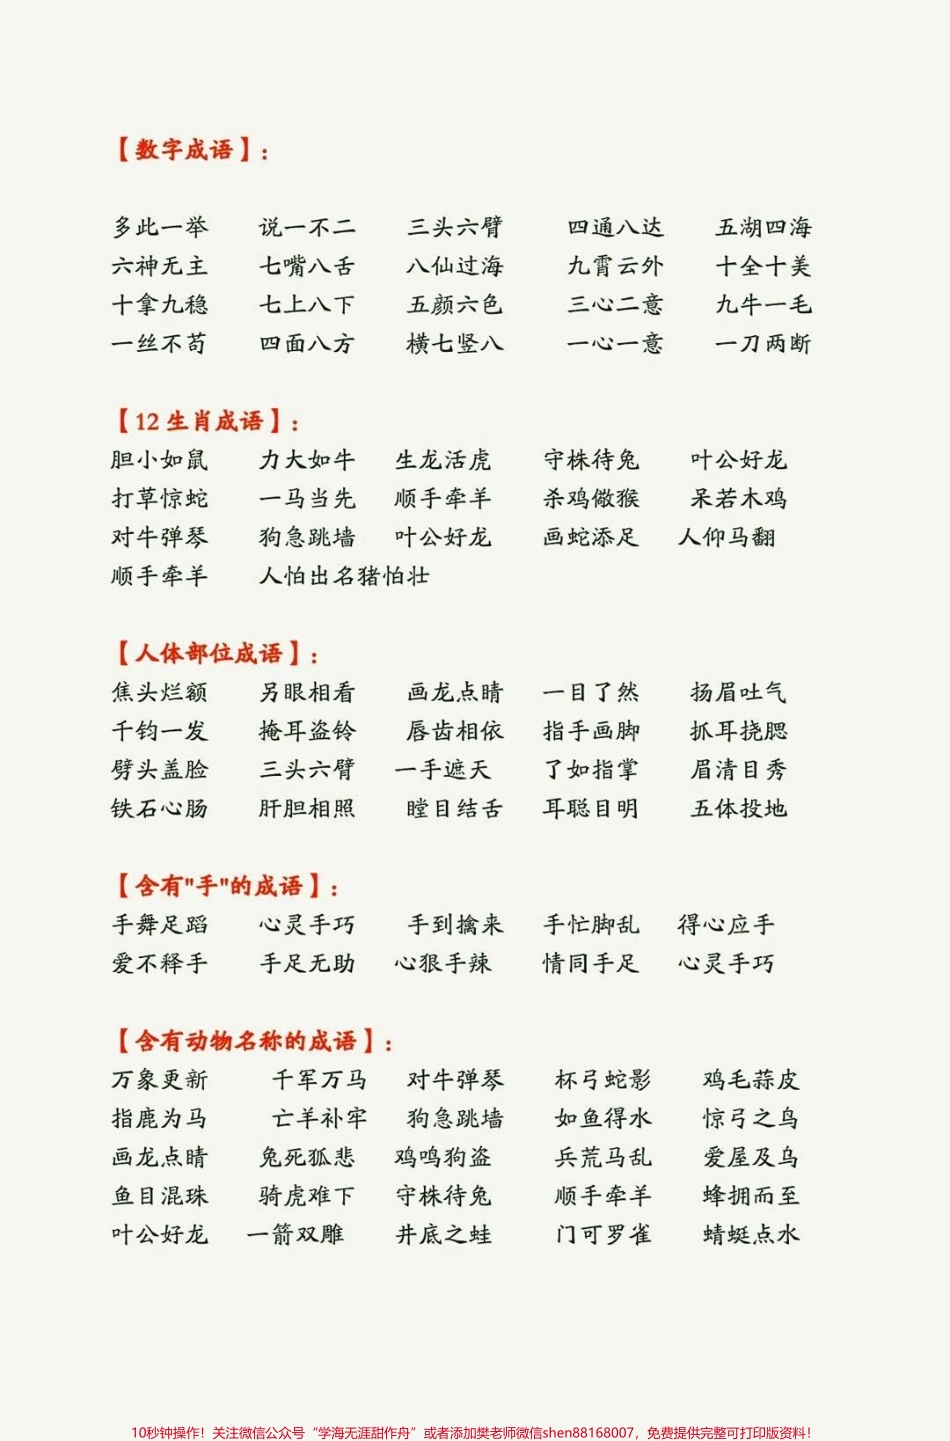 【数字成语】:
多此一举 说一不二 三头六臂 四通八达 五湖四海
六神无主 七嘴八舌 八仙过海 九霄云外 十全十美
十拿九稳 七上八下 五颜六色 三心二意 九牛一毛
一丝不苟 四面八方 横七竖八 一心一意 一刀两断
【12生肖成语】:
胆小如鼠 力大如牛 生龙活虎 守株待兔 叶公好龙
打草惊蛇 一马当先 顺手牵羊 杀鸡儆猴 呆若木鸡
对牛弹琴 狗急跳墙 叶公好龙 画蛇添足 人仰马翻
顺手牵羊 人怕出名猪怕壮
【人体部位成语】:
焦头烂额 另眼相看 画龙点睛 一目了然 扬眉吐气
千钧一发 掩耳盗铃 唇齿相依 指手画脚 抓耳挠腮
劈头盖脸 三头六臂 一手遮天 了如指掌 眉清目秀
铁石心肠 肝胆相照 瞠目结舌 耳聪目明 五体投地
【含有"手"的成语】:
手舞足蹈 心灵手巧 手到擒来 手忙脚乱 得心应手
爱不释手 手足无助 心狠手辣 情同手足 心灵手巧
【含有动物名称的成语】:
万象更新 千军万马 对牛弹琴 杯弓蛇影 鸡毛蒜皮
指鹿为马 亡羊补牢 狗急跳墙 如鱼得水 惊弓之鸟
画龙点睛 兔死狐悲 鸡鸣狗盗 兵荒马乱 爱屋及乌
鱼目混珠 骑虎难下 守株待兔 顺手牵羊 蜂拥而至
叶公好龙 一箭双雕 井底之蛙 门可罗雀 蜻蜓点水
10秒钟操作！关注微信公众号“学海无涯甜作舟”或者添加樊老师微信shen88168007，免费提供完整可打印版资料！